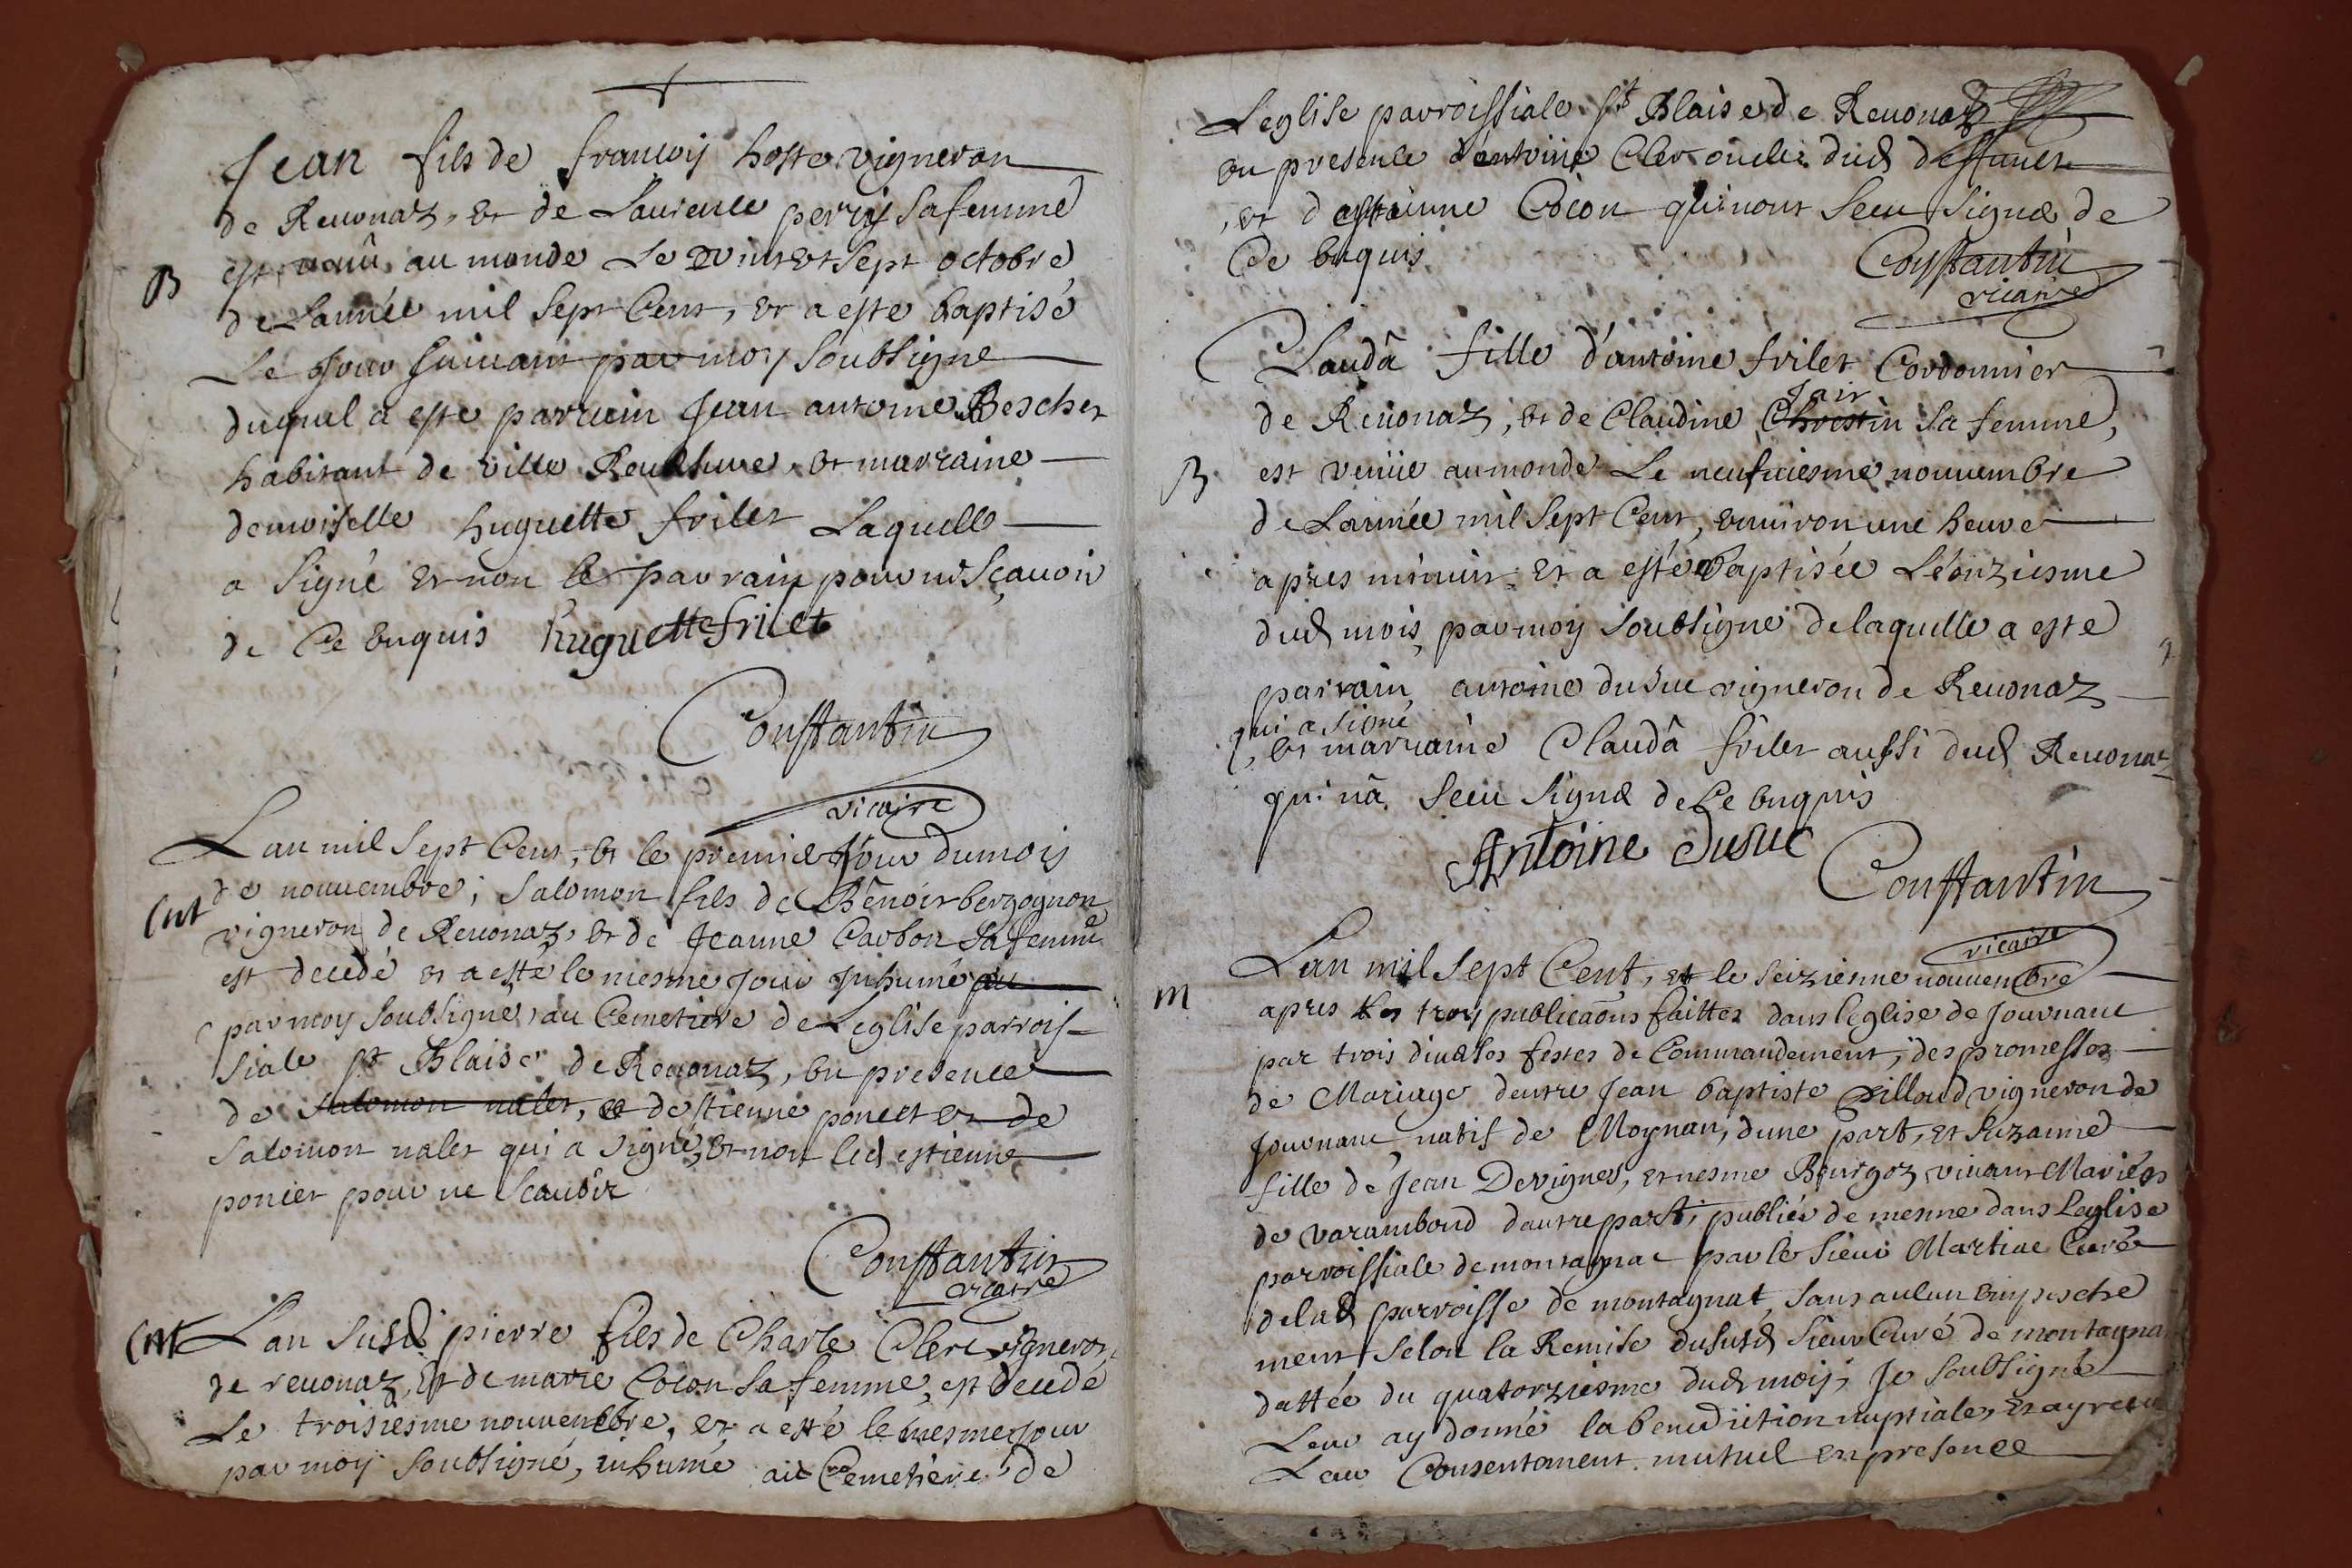 Jean fils de francois hoste vigneron
de Reuonaz, et de Laurence perrij sa femme
B
est venu au monde Le vint et sept octobre
de Lannée mil Sept Cent, et a este baptisé
Le Jour suiuant par moy soubsigne
duquel a este parrain Jean antoine Bescher
habitant de ville Reuersure, et marraine
demoiselle huguette frilet Laquelle
a signé et non le parrain pour ne sçauoir
de Ce enquis huguette frilet
Constantin
vicaire
Lan mil Sept Cent, et le premier Jour du mois
Ent de nouuembre, Salomon fils de Benoit bergognon
vigneron de Reuonaz, et de Jeanne Carbon sa femme
est decedé et a esté le mesme Jour Inhumé au
par moy soubsigné, au Cemetiere de Leglise parrois-
siale st Blaise de Reuonaz, en presence
de Salomon nalet, et destienne poncet et de
Salomon nalet qui a signé, et non led estienne
poncet pour ne Scauoir
Constantin
vicaire
Ent Lan susd pierre fils de Charle Clerc vigneron
de reuonaz, Et de marie Cocon sa femme, est decedé
Le troisiesme nouuembre, et a esté le mesme jour
par moy soubsigné, inhumé au Cemetière de
Leglise parroissiale st Blaise de Reuonaz
en presence d'antoine Clerc oncle dud deffunct
, et destienne Cocon qui n'ont sceu signé de
Ce enquis
Constantin
vicaire
Claudâ fille d'antoine frilet Cordonnier
Jair
de Reuonaz, et de Claudine Chrestin sa femme,
B
est venüe au monde Le neufuiesme nouuembre
de Lannée mil Sept Cent, enuiron une heure
apres minuit et a esté baptisée Léonziesme
dud mois, par moy soubsigné de laquelle a esté
parrain antoine dusuc vigneron de Reuonaz
qui a signé
et marraine Claudâ frilet aussi dud Reuonaz
qui nâ sceu signé de Ce enquis
Antoine dusuc
Constantin
vicaire
Lan mil sept Cent, et le seizienne nouuembre
m
apres les troy publicaôns faittes dans leglise de Journanc
par trois diuerses festes de Commandement, des promesses
de Mariage dentre Jean baptiste Pilloud vigneron de
Journanc natif de Moynan, dune part, et Suzanne
fille de Jean Devignes, et nesme Bourgoz viuans Mariés
de varambond dautre part, publiés de mesme dans Leglise
parroissiale de montagnac par le Sieur Martine Curé
de lad parroisse de montagnat, sans aulcun empesche
ment selon la Remise du susd Sieur Curé de montagna
dattée du quatorziesme dud mois, Je soubsigné
Leur ay donné la benediction nuptiale, et ay receu
Leur Consentement mutuel en presence